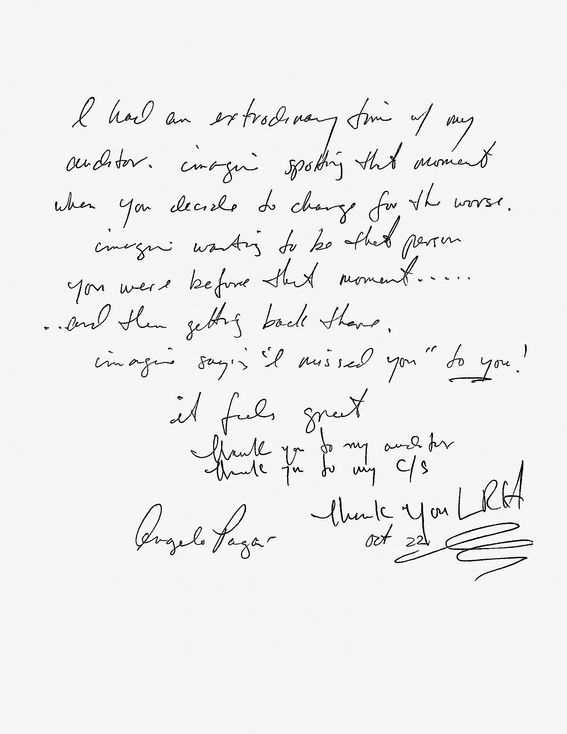 I had an extrodinary time w/ my
auditor. imagine spotting that moment
when you decide to change for the worse.
imagine wanting to be that person
you were before that moment.....
..and then getting back there.
imagine saying "I missed you" to you!
it feels great
thank you to my auditor
thank you to my C/S
thank you LRH
Angelo Pagan
oct 22